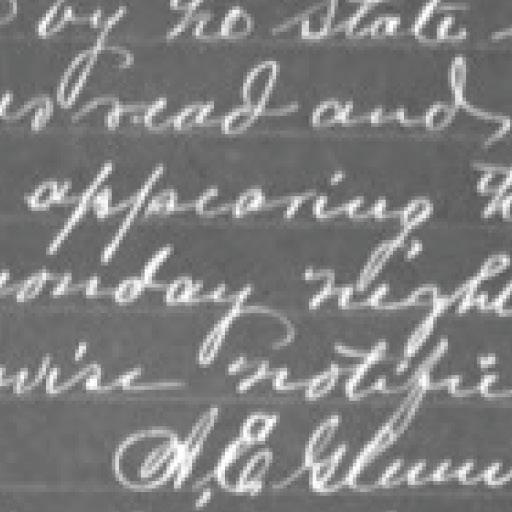 by no state
read and
appearing
onday night
wise notifie
A. E. Glenn